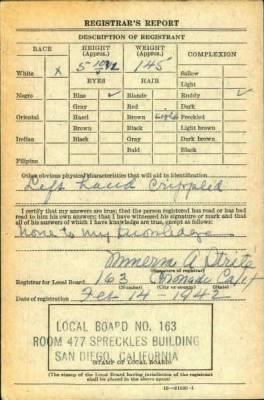 REGISTRAR'S REPORT
DESCRIPTION OF REGISTRANT
RACE HEIGHT (Approx.) WEIGHT (Approx.) COMPLEXION
5 145
White x Sallow
EYES HAIR Light
Negro Blue ✓ Blonde Ruddy ✓
Gray Red Dark
Oriental Hazel Brown Light Freckled
Brown Black Light brown
Indian Black Gray Dark brown
Bald Black
Filipino
Other obvious physical characteristics that will aid in identification
Left hand crippled
I certify that my answers are true; that the person registered has read or has had
read to him his own answers; that I have witnessed his signature or mark and that
all of his answers of which I have knowledge are true, except as follows:
None to my knowledge
A
(Signature of registrar)
Registrar for Local Board 163 Coronado Calif
(Number) (City or county) (State)
Date of registration Feb 14 1942
LOCAL BOARD NO. 163
ROOM 477 SPRECKLES BUILDING
SAN DIEGO, CALIFORNIA
(STAMP OF LOCAL BOARD)
(The stamp of the Local Board having jurisdiction of the registrant
shall be placed in the above space)